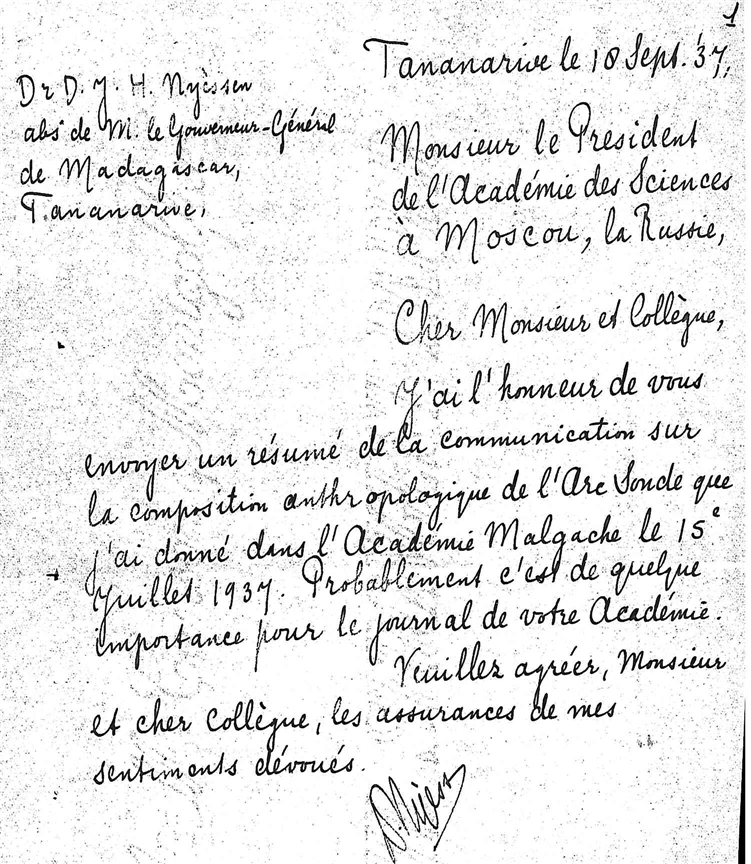 1
Tananarive le 18 Sept. '37,
Dr D. J. H. Nyèssen
abs de M. le Gouverneur-Général
de Madagascar,
Tananarive,
Monsieur le President
de l'Académie des Sciences
à Moscou, la Russie,
Cher Monsieur et Collègue,
J'ai l'honneur de vous
envoyer un résumé de la communication sur
la composition anthropologique de l'Arc Sonde que
j'ai donné dans l'Académie Malgache le 15e
Juillet 1937. Probablement c'est de quelque
importance pour le journal de votre Académie.
Veuillez agréer, Monsieur
et cher Collègue, les assurances de mes
sentiments dévoués.